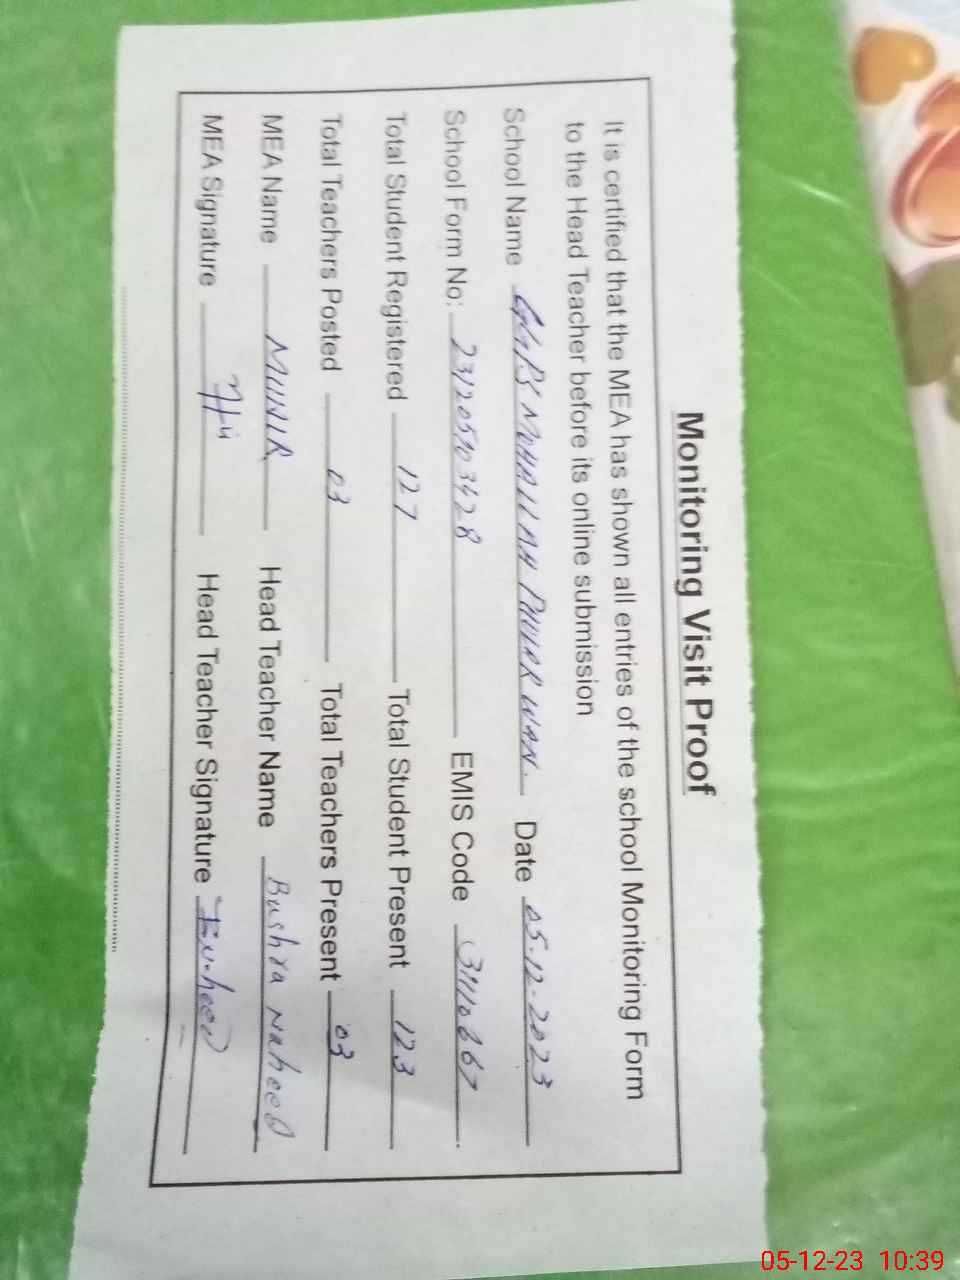 Monitoring Visit Proof
It is certified that the MEA has shown all entries of the school Monitoring Form
to the Head Teacher before its online submission
School Name GGPS MOHALLAH PHULARWAN. Date 05-12-2023
School Form No: 231205103428 EMIS Code 31110867
Total Student Registered 127 Total Student Present 123
Total Teachers Posted 03 Total Teachers Present 03
MEA Name MUNIR Head Teacher Name Bushra Naheed
MEA Signature Head Teacher Signature
05-12-23 10:39